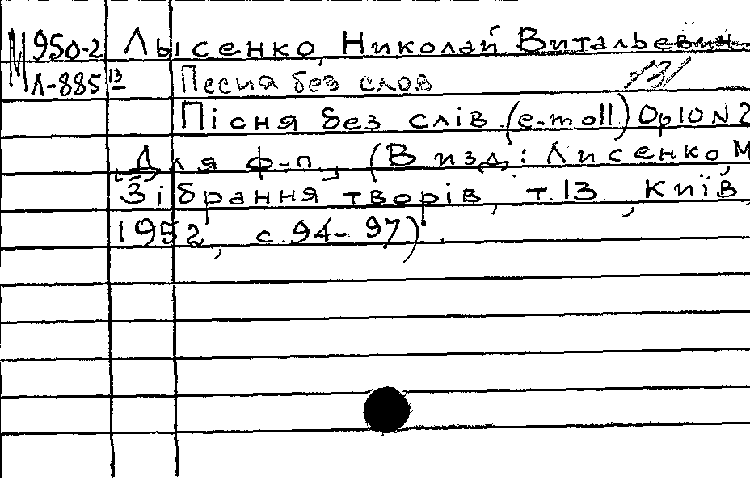 М 950-2 Лысенко, Николай Витальевич
Л-885 13 Песня без слов
Пісня без слів (e-moll) Op 10 N 2
Для ф-п. (В изд.: Лисенко, М
Зібрання творів, т. 13, Київ,
1952, с. 94-97).